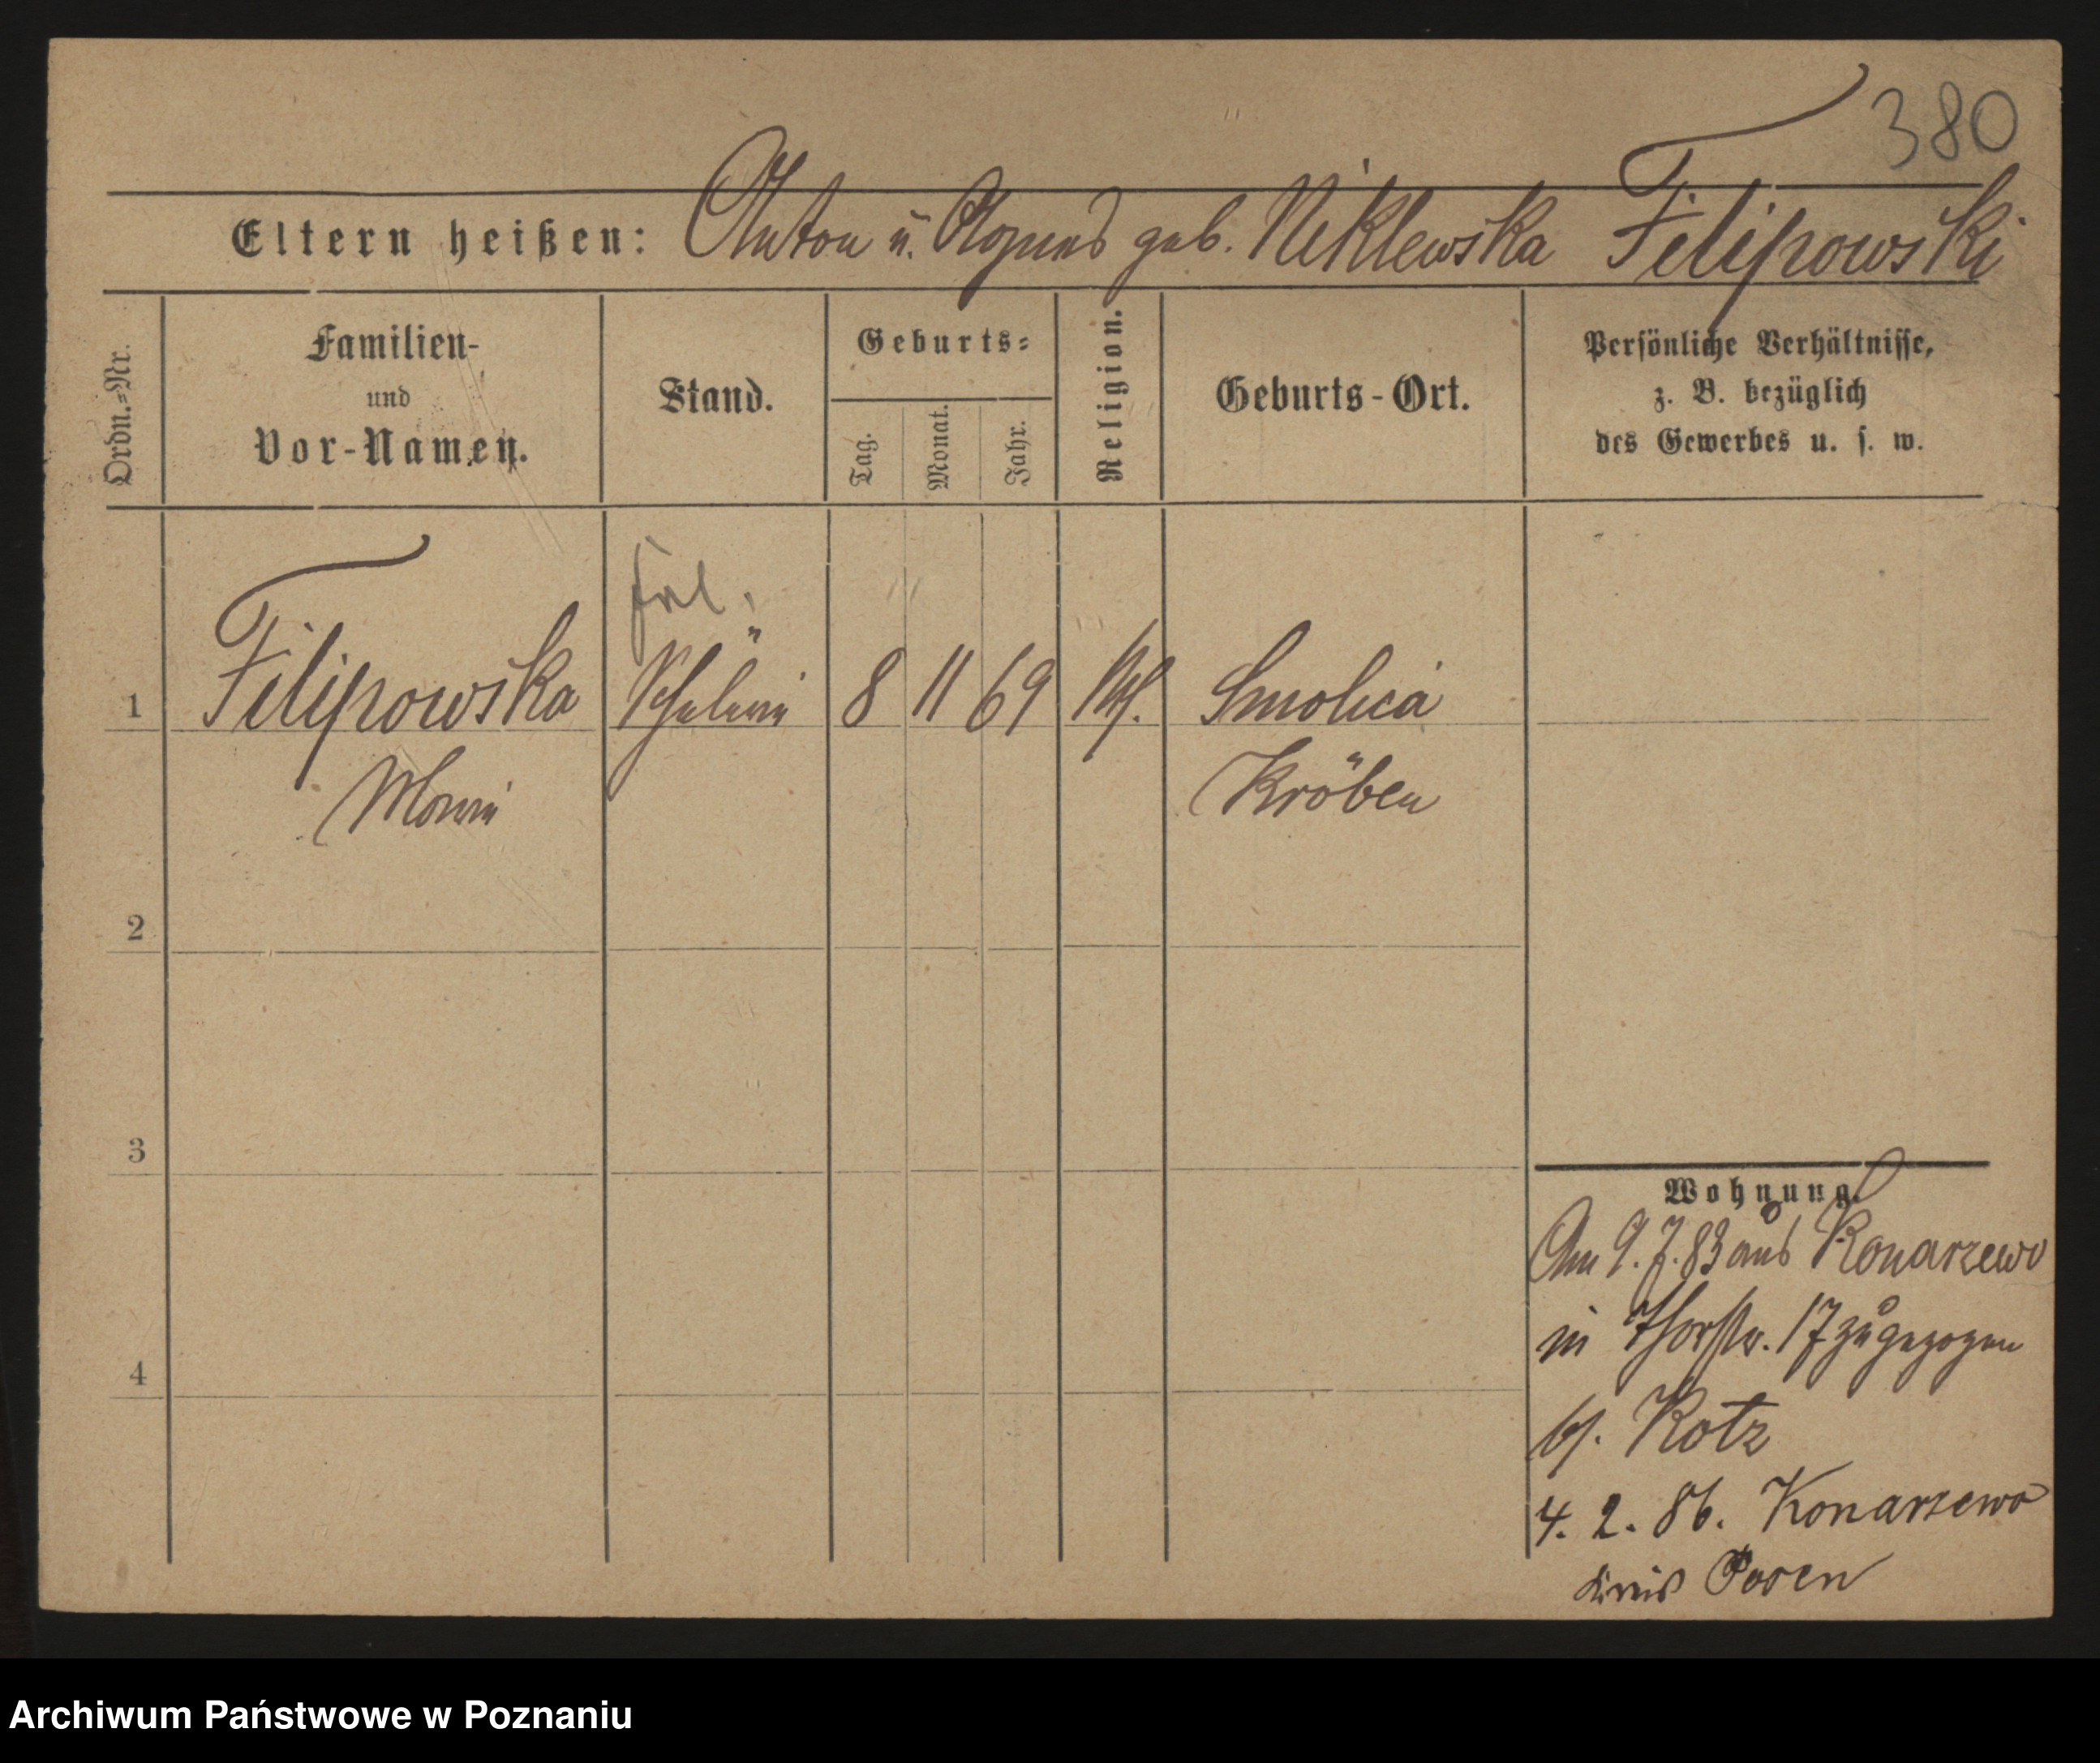 380
Eltern heißen: Anton u. Agnes geb. Niklewska Filipowski
Ordn.-Nr.
Familien-
und
Vor-Namen.
Stand.
Geburts-
Tag.
Monat.
Jahr.
Religion.
Geburts-Ort.
Persönliche Verhältnisse,
z. B. bezüglich
des Gewerbes u. s. w.
1
Filipowska
Marie
8 11 69
Smolica
Kröben
2
3
4
Wohnung.
Am 9. 7. 83 aus Konarzewo
in Thorstr. 17 zugezogen
bei Kotz
4. 2. 86. Konarzewo
Kreis Posen
Archiwum Państwowe w Poznaniu